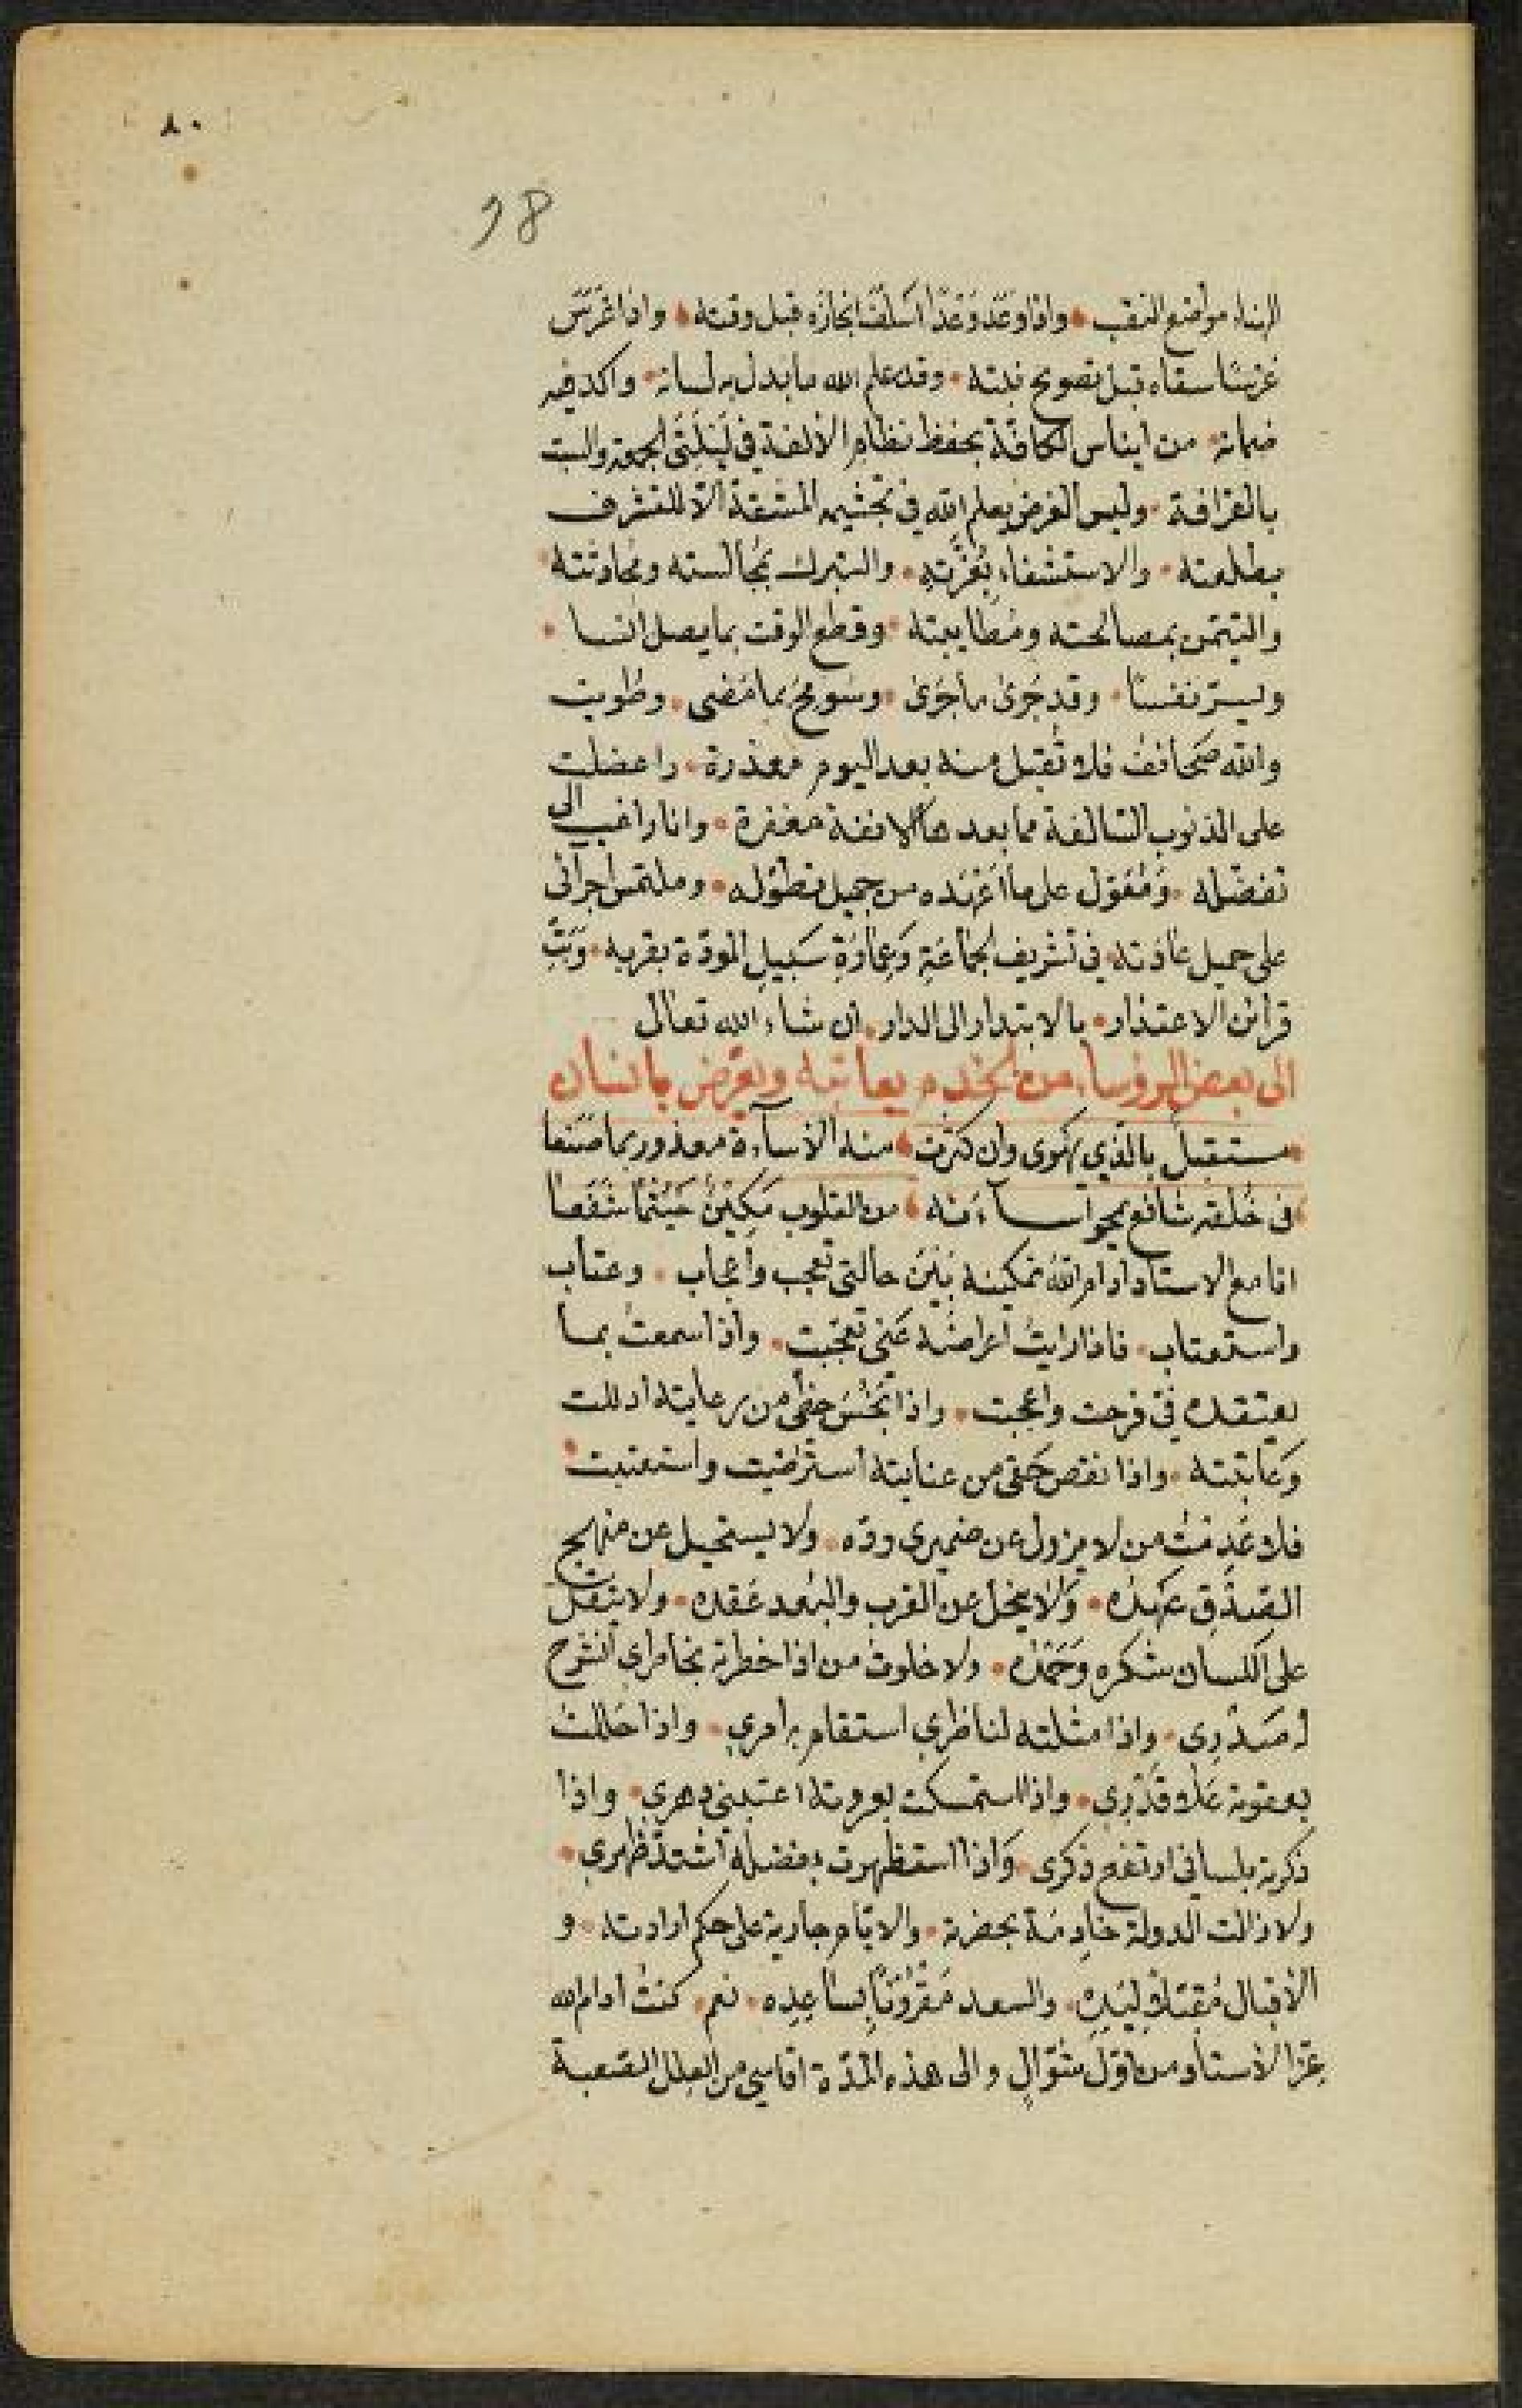 ٨٠
98
الهناء مواضع النقب • واذا وَعَد وَعْدًا اَسْلَفَ انجازَه قبل وقته • واذا غَرَسَ
غرسًا سقاه قبل تصويح نبته • وقد علم الله ما بدل به لسانه • واكد فيه
ضمانه • من ايناس الكافّة بحفظ نظام الألفة في لَيْلَتَى الجمعة والسبت
بالقرافة • وليس الغرض يعلم الله في تجشيمه المشقة الّا للتشرف
بطلعته • والاستشفاء بغُرّته • والتبرك بمُجالسته ومُحادثته
والتيمّن بمصالحته ومُطايبته • وقطع الوقت بما يصل انسا •
ويسرّ نفسًا • وقد جَرى ما جَرى • وسُومح بما مَضى • وطويت
والله صَحائف فلا تُقبل منه بعد اليوم معذرة • واعضلت
على الذنوب السّالفة مما بعد هآ الافقة مغفرة • وانا راغب الى
تفضّله • ومُعَوّل على ما اَعْهَده من جميل تطوّله • وملتمس اجرائى
على جميل عَادَته • في تشريف الجماعَةِ وَعِمارَةِ سَبيلِ المودّة بقربه • وَبَتِّ
قرائن الاعتذار • بالابتدار الى الدار • ان شاء الله تعالى
الى بعض الرؤساء من الخدم يعاتبه ويعرّض بانسان
• مستقبل بالّذي يهوى وان كثرت • منه الأسآءة معذور بما صَنَعا
• فى خَلقه شافع يمحو اسآءته • من القلوب مَكِيْنٌ حَيْثُمَا شَفَعا
انا مع الاستاذ ادام اللهُ تمكينه بَيْنَ حالتى تعجب واعجاب • وعتاب
واستعتاب • فاذا رايتُ اعراضَه عَنى تعجّبت • واذا سمعتُ بما
يعتقده فيّ فرحت واعجبت • واذا بُخسَ حظّى من رعايته ادللت
وَعاتبته • واذا نقص حَقى من عنايته استرضيت واستعتبت •
فلا عَدِمتُ من لا يزول عن ضميرى ودّه • ولا يستحيل عن منهج
الصّدْقِ عَهْدُه • وَلا يحل عن القرب والبُعد عَقده • ولا يثقل
على اللسان شكره وحَمْدُه • ولا خلوتُ من اذا خطرته بخاطرى انشرح
له صَدْرى • واذا مثلته لناظري استقام به امري • واذا حَللتُ
بعقوته عَلا قَدْرِي • واذا استمسكت بعروته اعتبنى دهري • واذا
ذكرته بلسانى ارتفع ذكرى • وَاذا استظهرت بفضله اشتدّ ظهري •
ولا زالت الدولة خادِمَة بحضرته • والايّام جارية على حكم ارادته • و
الأقبال مُقتبَلًا لِيَدِه • والسعد مَقْرُوْنًا بِسَاعِدِه • نعم • كنتُ ادام الله
عِزّ الأستاد من اوّل شوّالٍ والى هذه المدّة اقاسي من العلل الصّعبة